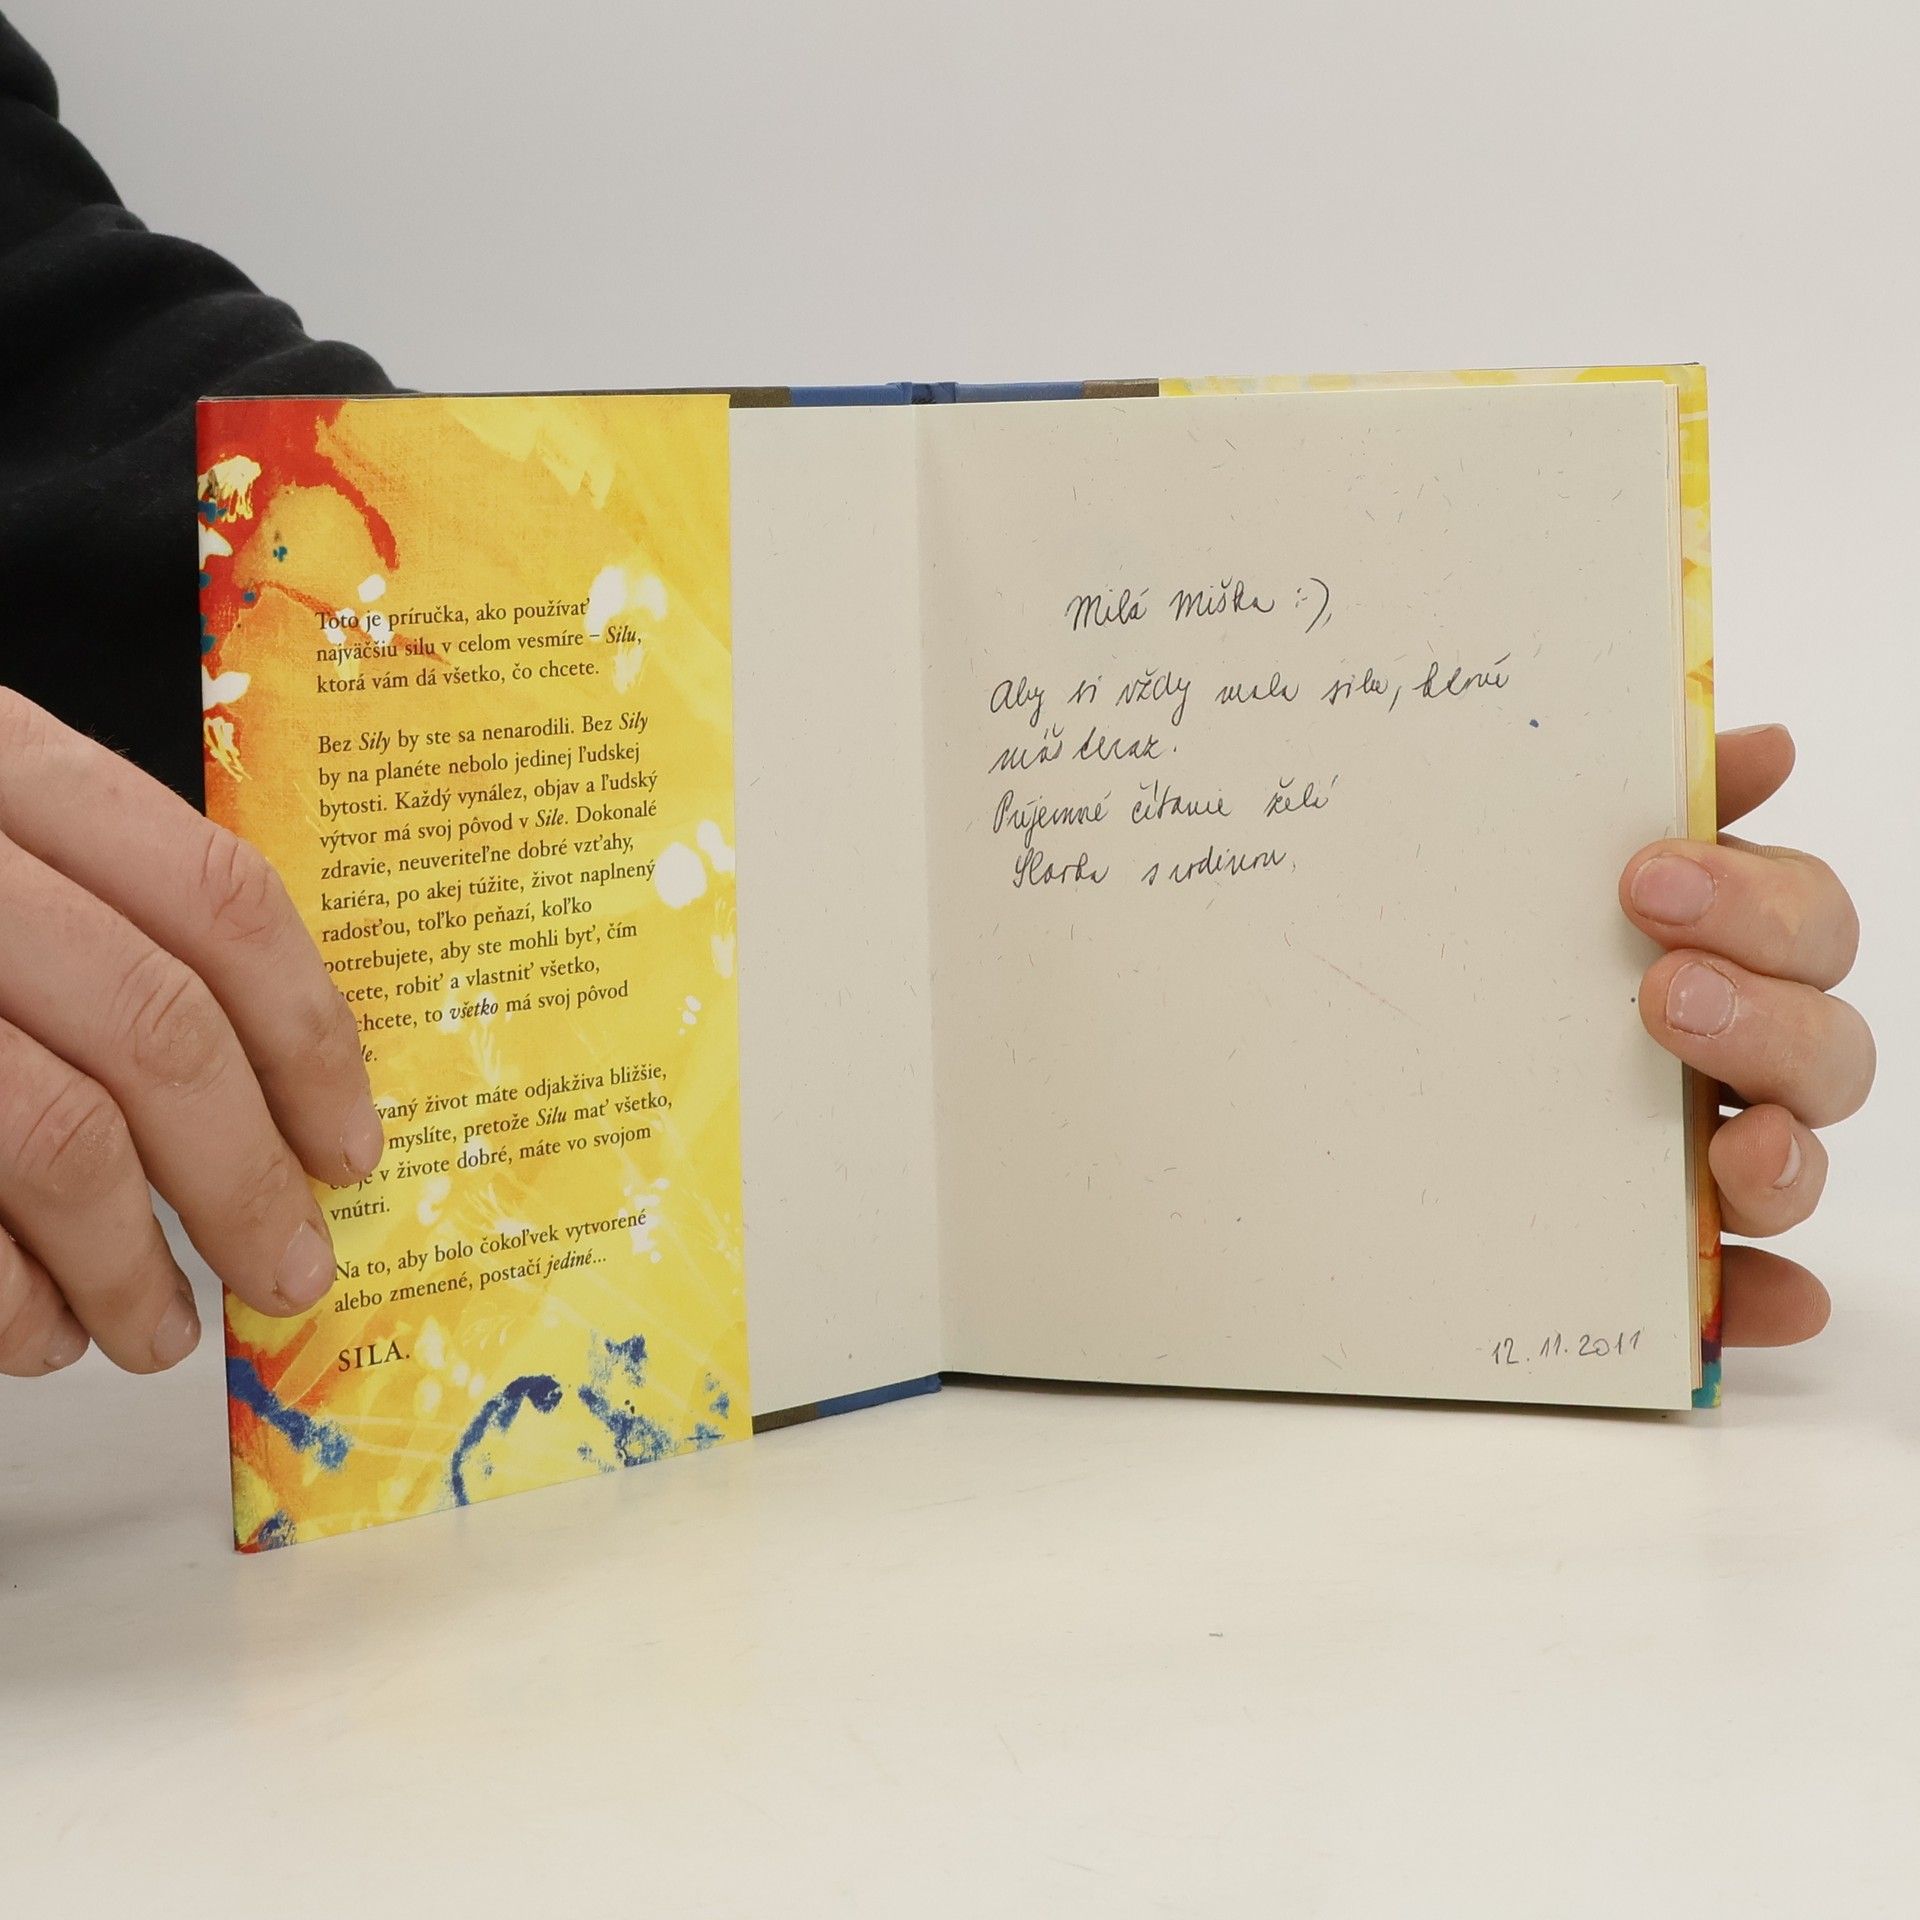 Toto je príručka, ako používať
najväčšiu silu v celom vesmíre – Silu,
ktorá vám dá všetko, čo chcete.
Bez Sily by ste sa nenarodili. Bez Sily
by na planéte nebolo jedinej ľudskej
bytosti. Každý vynález, objav a ľudský
výtvor má svoj pôvod v Sile. Dokonalé
zdravie, neuveriteľne dobré vzťahy,
kariéra, po akej túžite, život naplnený
radosťou, toľko peňazí, koľko
potrebujete, aby ste mohli byť, čím
robiť a vlastniť všetko,
chcete, to všetko má svoj pôvod
život máte odjakživa bližšie,
myslíte, pretože Silu mať všetko,
je v živote dobré, máte vo svojom
vnútri.
Na to, aby bolo čokoľvek vytvorené
alebo zmenené, postačí jediné...
SILA.
Milá Miška :-),
Aby si vždy mala silu, ktorú
máš teraz.
Príjemné čítanie želá
s rodinou.
12.11.2011